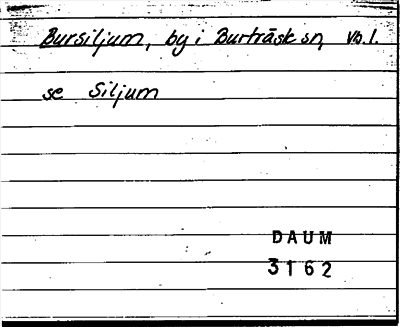 Bursiljum, by i Burträsk sn, Vb. l.
se Siljum
DAUM
3162